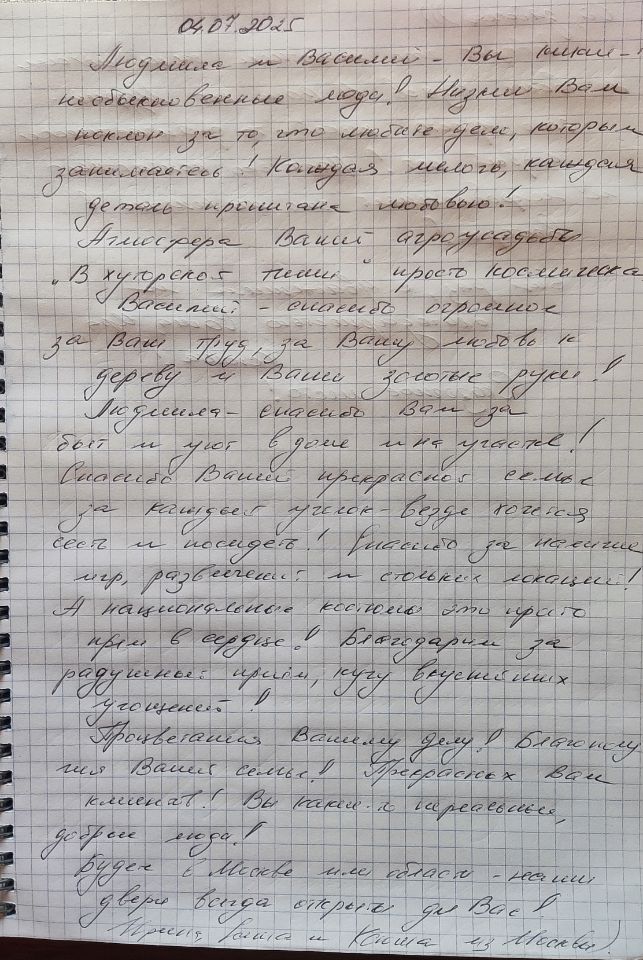 04.07.2025
Людмила и Василий - Вы какие-то
необыкновенные люди! Низкий Вам
поклон за то, что любите дело, которым
занимаетесь! Каждая мелочь, каждая
деталь пропитана любовью!
Атмосфера Вашей агроусадьбы
"В хуторской тиши" просто космическая
Василий - спасибо огромное
за Ваш труд, за Вашу любовь к
дереву и Ваши золотые руки!
Людмила - спасибо Вам за
быт и уют в доме и на участке!
Спасибо Вашей прекрасной семье
за каждый уголок - везде хочется
сесть и посидеть! Спасибо за наличие
игр, развлечений и стольких локаций!
А национальные костюмы это просто
прям в сердце! Благодарим за
радушный приём, кучу вкуснейших
угощений!
Процветания Вашему делу! Благополу
чия Вашей семье! Прекрасных Вам
клиентов! Вы какие-то нереальные,
добрые люди!
Будете в Москве или области - наши
двери всегда открыты для Вас!
Ирина, и из Москвы)